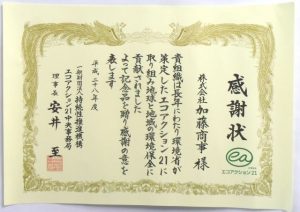 感謝状
ea
エコアクション21
株式会社 加藤商事 様
貴組織は長年にわたり環境省が
策定したエコアクション21に
取り組み地球と地域の環境保全に
貢献されました
よって記念品を贈り感謝の意を
表します
平成二十八年度
一般財団法人 持続性推進機構
エコアクション21中央事務局
理事長 安井 至